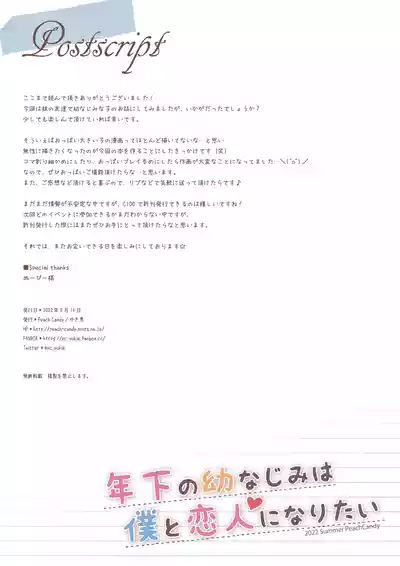 Postscript
ここまで読んで頂きありがとうございました!
今回は妹の友達で幼なじみな子のお話にしてみましたが、いかがだったでしょうか?
少しでも楽しんで頂けていれば幸いです。
そういえばおっぱい大きい子の漫画ってほとんど描いてないな…と思い
無性に描きたくなったのが今回の本を作ることにしたきっかけです(笑)
コマ割り細かめにしたり、おっぱいプレイ多めにしたら作画が大変なことになってました…
なので、ぜひおっぱいご堪能頂けたらな…と思います。
また、ご感想など頂けると喜ぶので、リプなどで気軽に送って頂けたらです♪
まだまだ情勢が不安定な中ですが、C100で新刊発行できるのは嬉しいですね!
次回どのイベントに参加できるかまだわからない中ですが、
新刊発行した際にはまたぜひお手にとって頂けたらなと思います。
それでは、またお会いできる日を楽しみにしております☆
■Special thanks
えーびー様
発行日*2022年8月14日
発行*Peach Candy/やき黒
HP*http://peach-candy.moo.jp/
FANBOX*https://
Twitter*
無断転載・複製を禁止します。
年下の幼なじみは
僕と恋人になりたい
2022 Summer PeachCandy